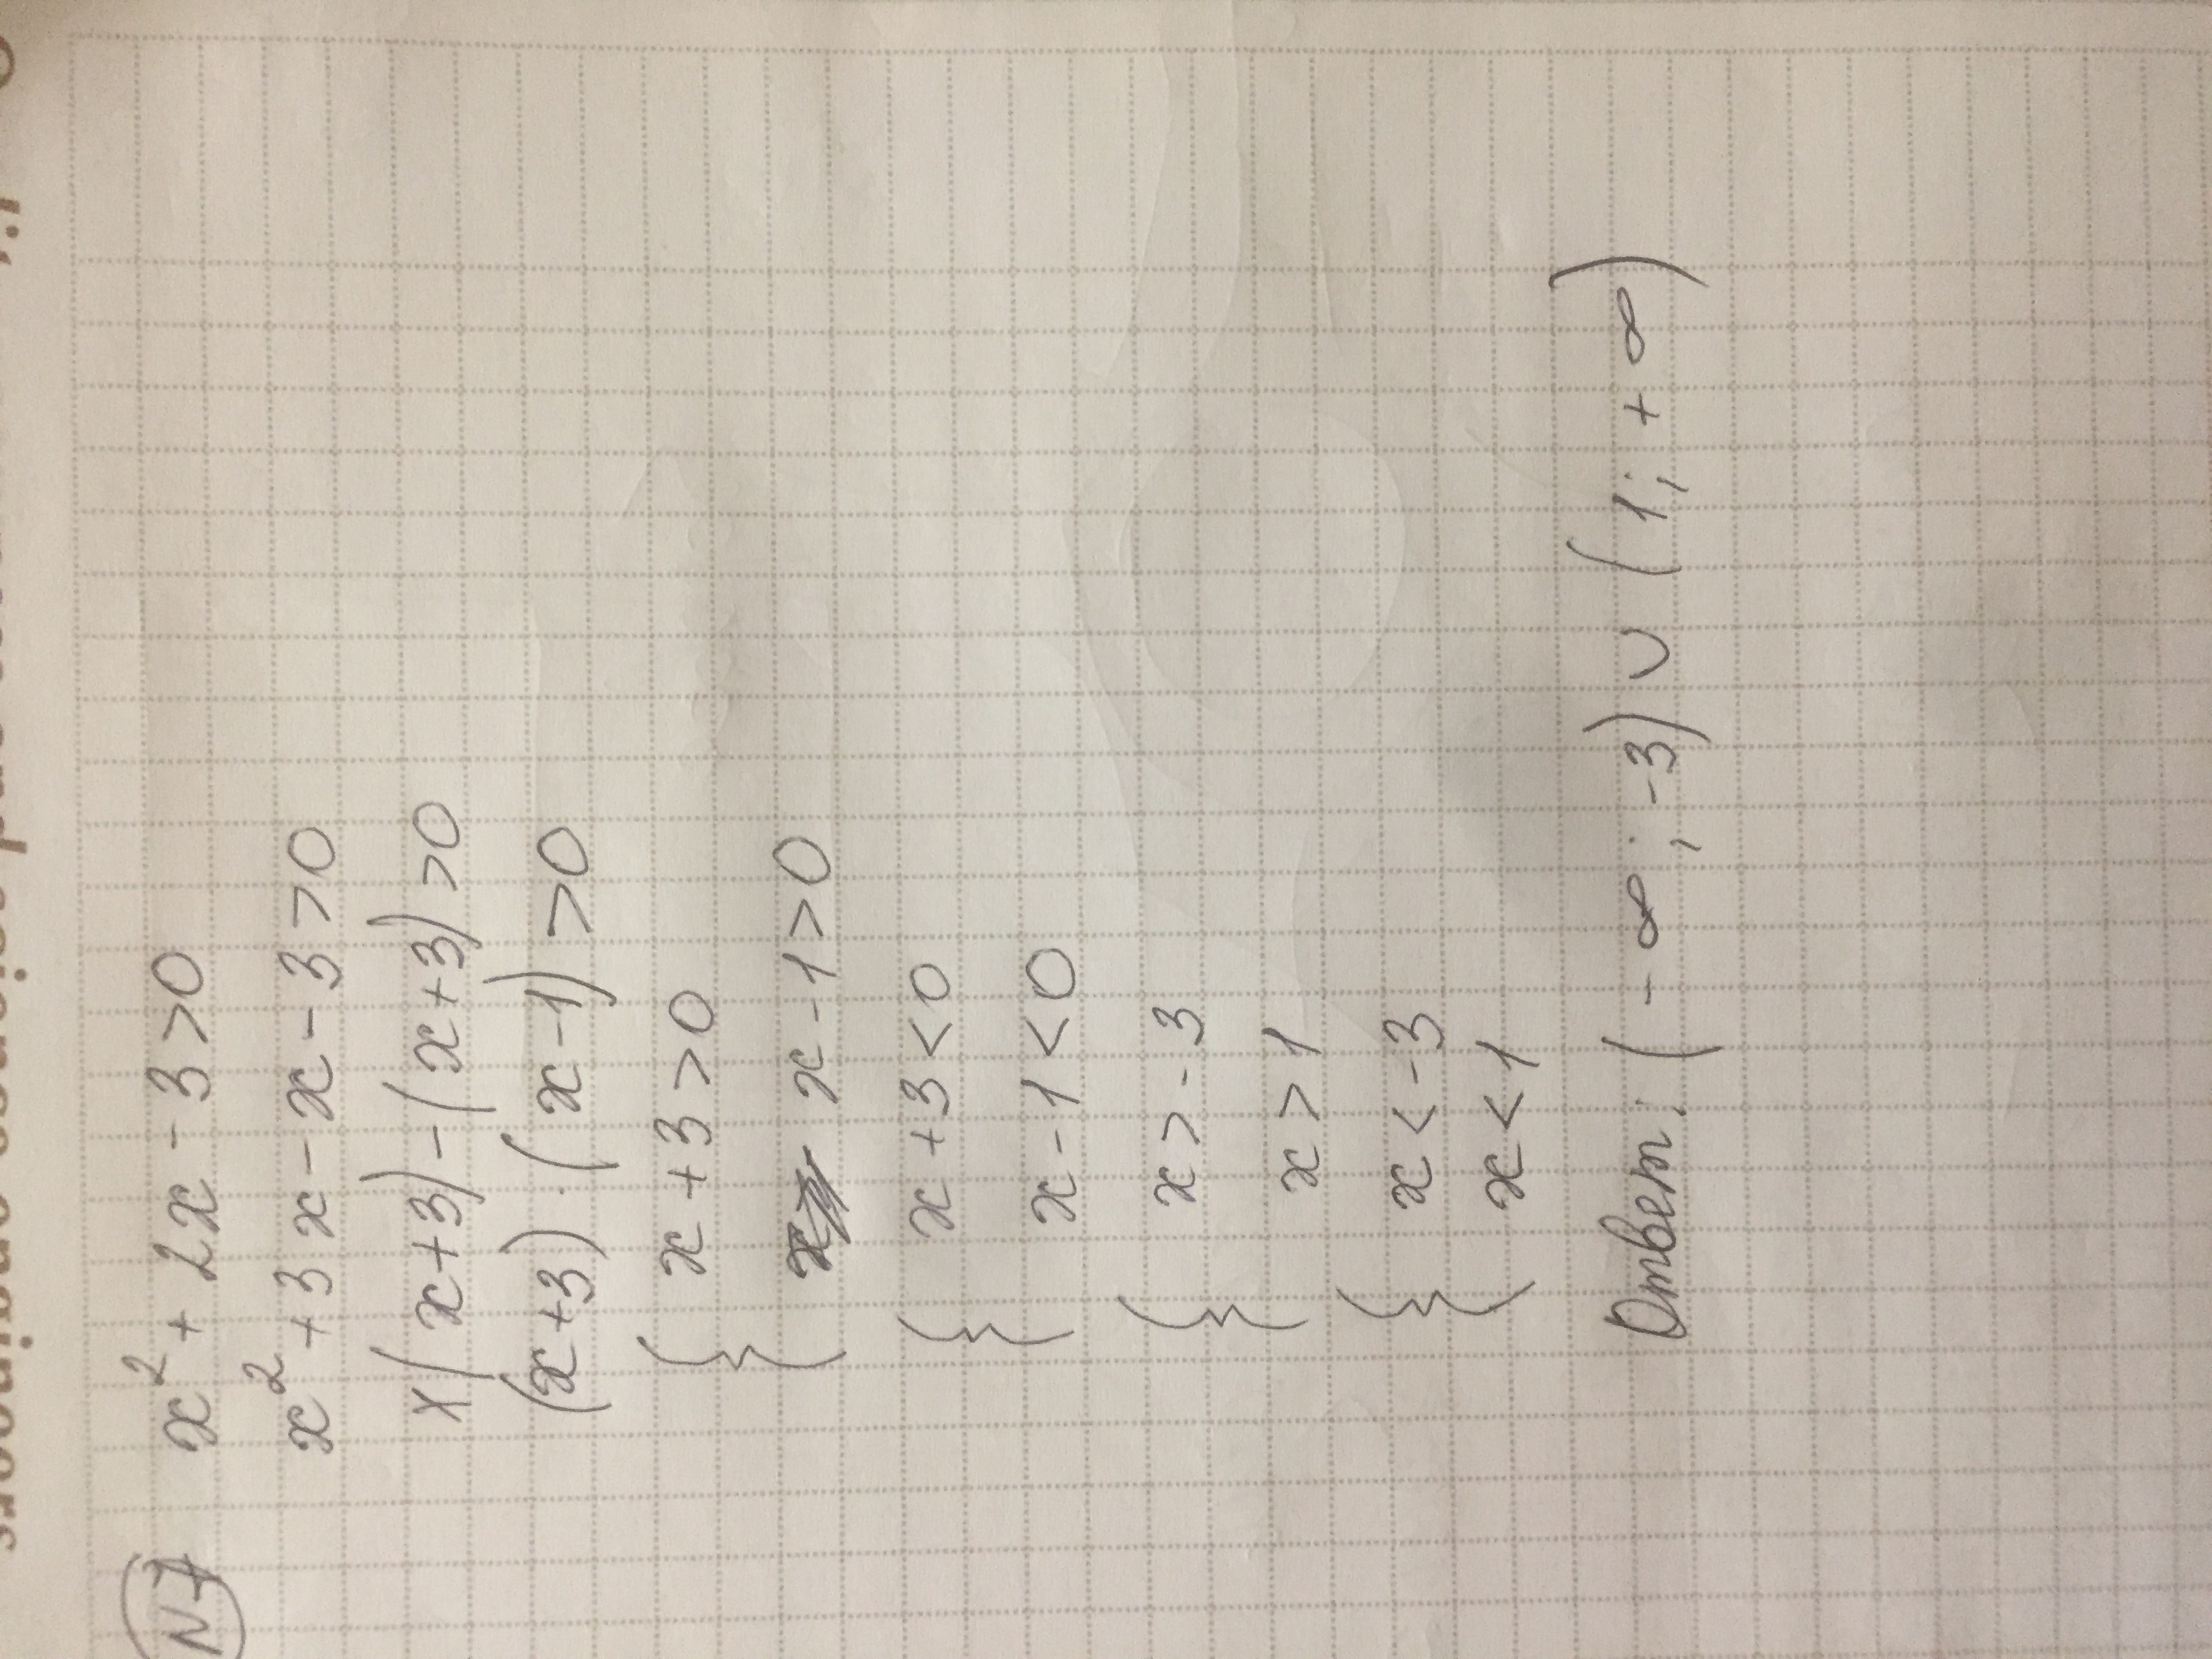 N7
x² + 2x - 3 > 0
x² + 3x - x - 3 > 0
x(x+3) - (x+3) > 0
(x+3) · (x-1) > 0
{ x + 3 > 0
x - 1 > 0
{ x + 3 < 0
x - 1 < 0
{ x > -3
x > 1
{ x < -3
x < 1
Ответ: (-∞; -3) ∪ (1; +∞)